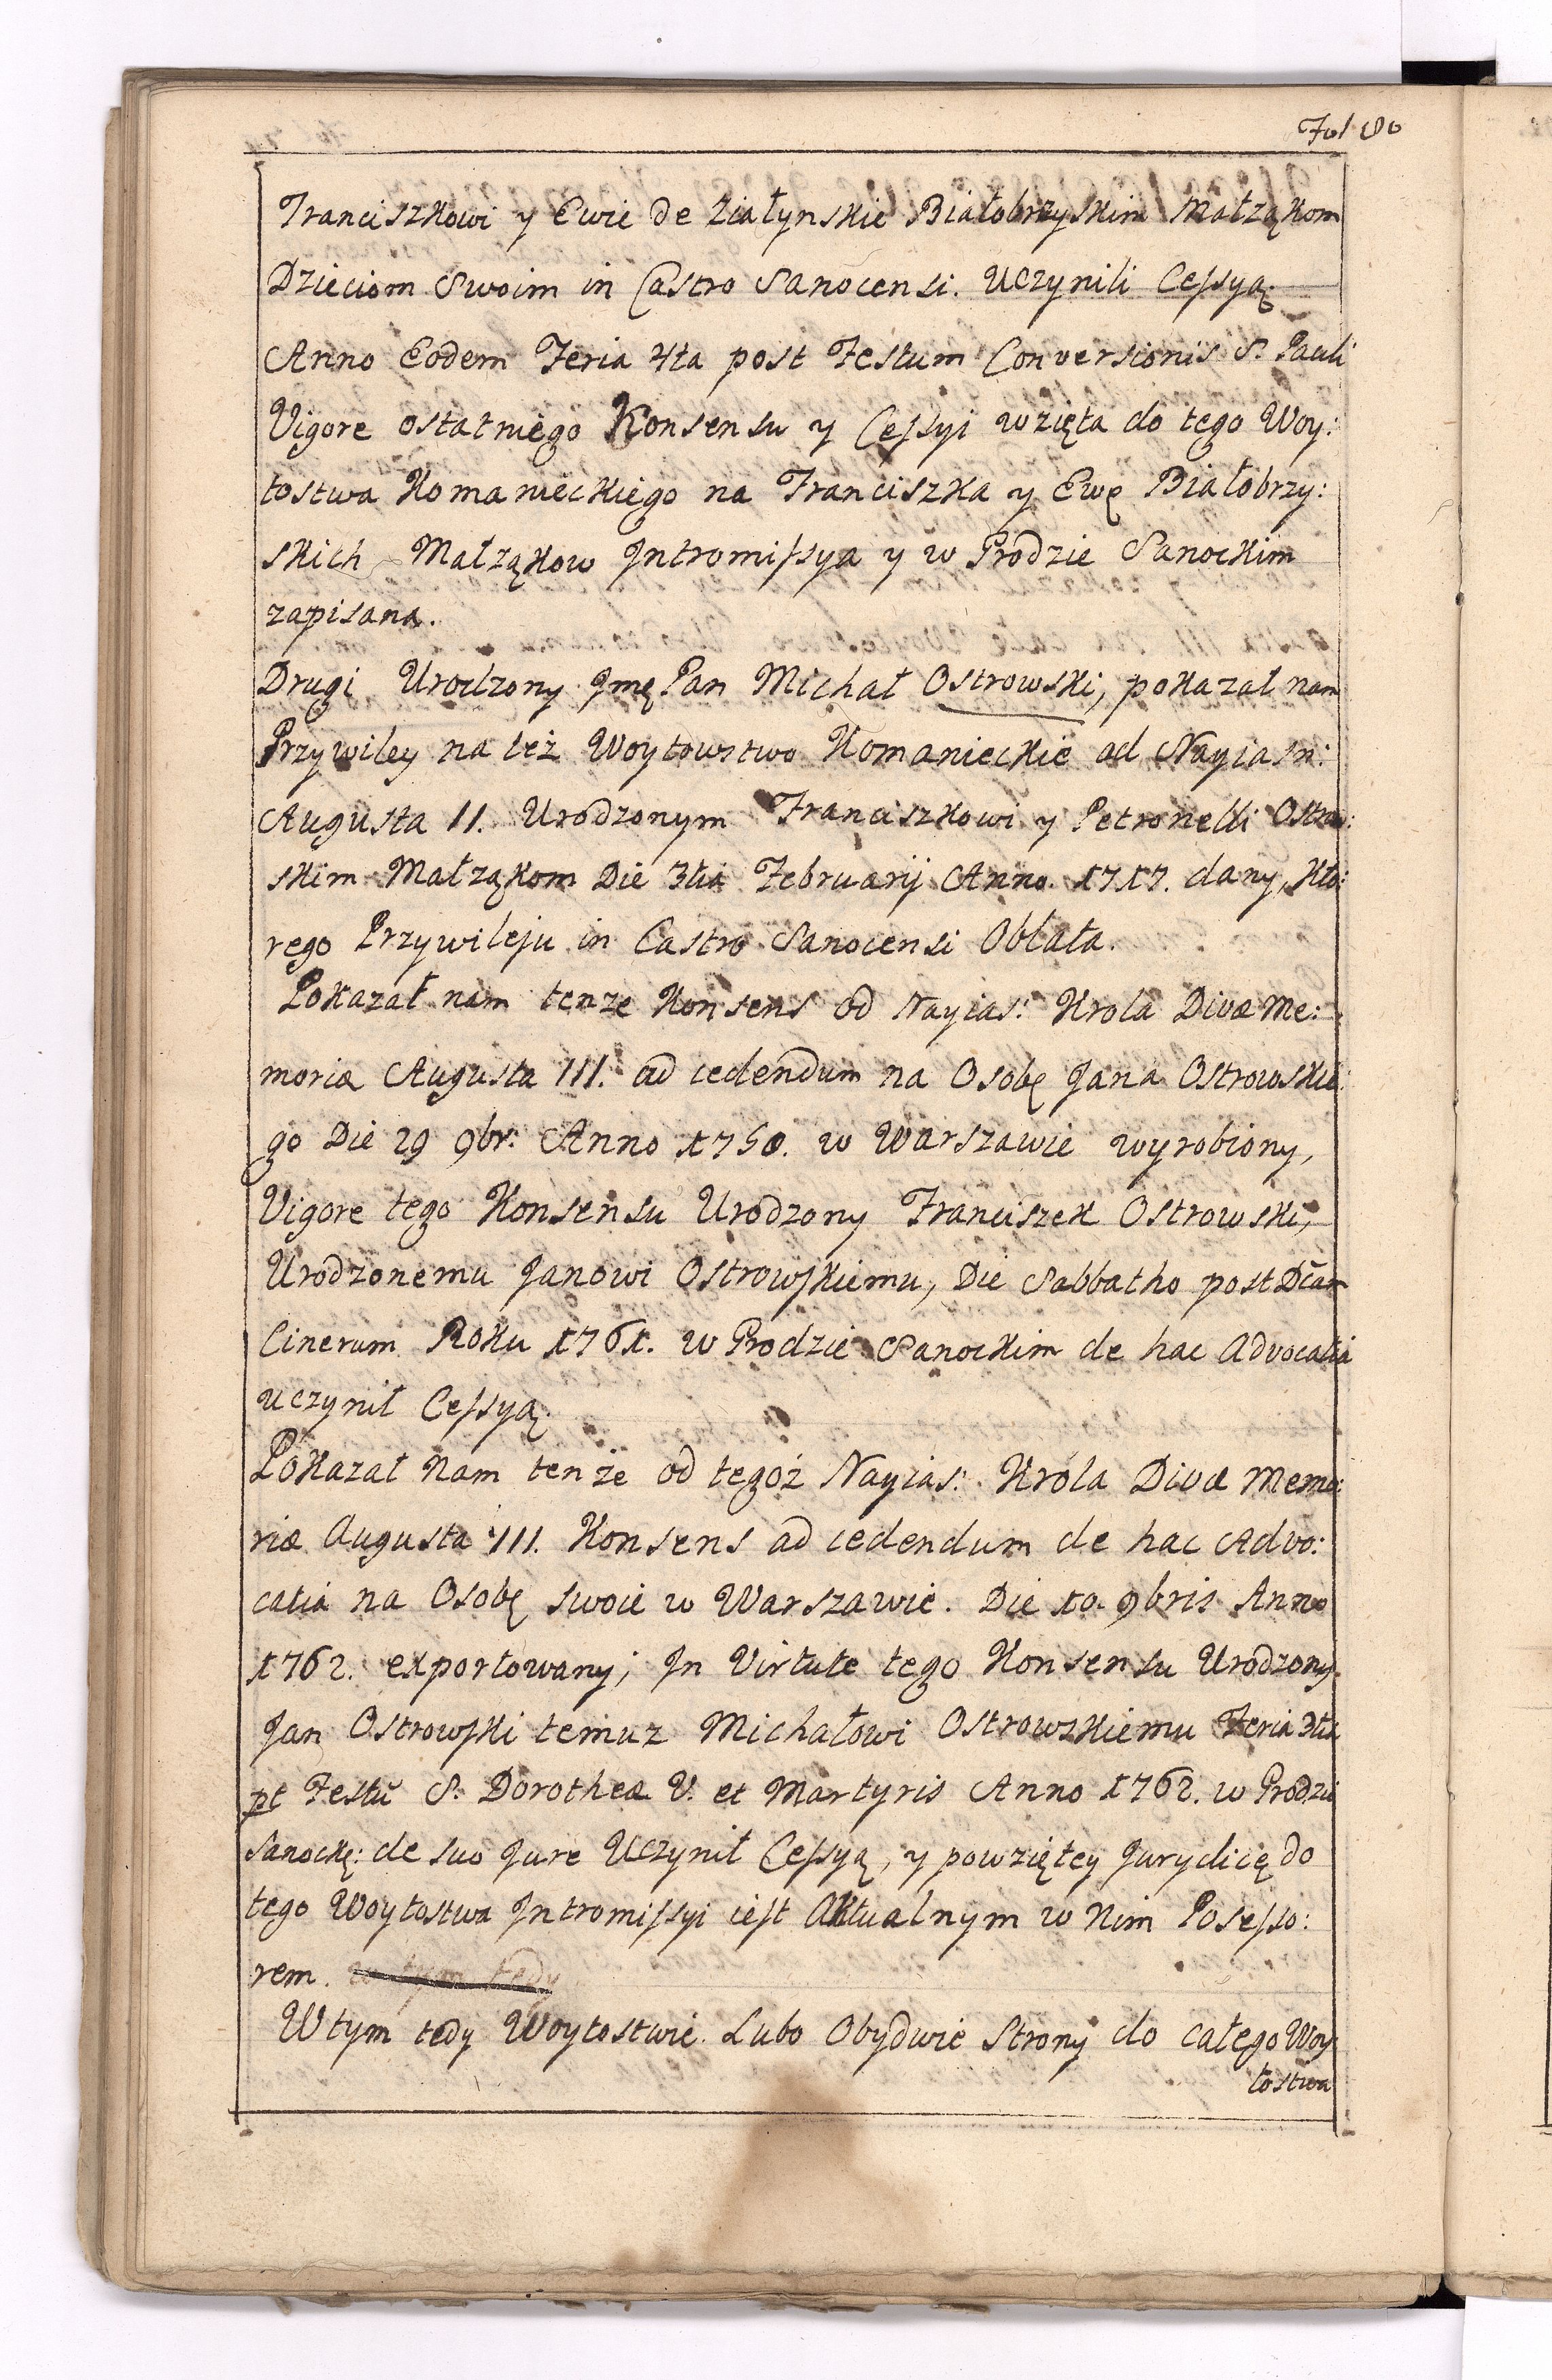 Fol 80
Franciszkowi y Ewie de Ziałynskie Białobrzyskim Małząkom
Dzieciom Swoim in Castro Sanocensi. Uczynili Cessyą.
Anno Eodem Feria 4ta post Festum Conversionis S. Pauli
Vigore ostatniego Konsensu y Cessyi wzięta do tego Woy:
tostwa Komanieckiego na Franciszka y Ewę Białobrzy:
skich Małząkow Intromissya y w Grodzie Sanockim
zapisana.
Drugi Urodzony Jmę Pan Michał Ostrowski, pokazał nam
Przywiley na też Woytowstwo Komanieckie od Nayiasn:
Augusta II. Urodzonym Franciszkowi y Petronelli Ostrow:
skim Małząkom Die 3tia Februarij Anno 1717. dany, Kto:
rego Przywileju in Castro Sanocensi Oblata.
Pokazał nam tenze Konsens od Nayias: Krola Divæ Me:
moriæ Augusta III. ad cedendum na Osobę Jana Ostrowskie:
go Die 29 9br: Anno 1750. w Warszawie wyrobiony,
Vigore tego Konsensu Urodzony Franciszek Ostrowski,
Urodzonemu Janowi Ostrowskiemu, Die Sabbatho post Dicam
Cinerum Roku 1761. w Grodzie Sanockim de hac Advocatia
uczynił Cessyą.
Pokazał Nam tenże od tegoż Nayias: Króla Divæ Memo:
riæ Augusta III. Konsens ad cedendum de hac Advo:
catia na Osobę swoie w Warszawie. Die 10. 9bris Anno
1762. exportowany; In Virtute tego Konsensu Urodzony
Jan Ostrowski temuz Michałowi Ostrowskiemu Feria 3tia
pt Festu S. Dorotheæ V. et Martyris Anno 1762. w Grodzie
Sanockę: de suo Jure Uczynił Cessyą, y powziętey Jurydicę do
tego Woytostwa Intromissyi iest Aktualnym w Nim Posesso:
rem. w tym tedy
W tym tedy Woytostwie. Lubo Obydwie Strony do całego Woy:
tostwa